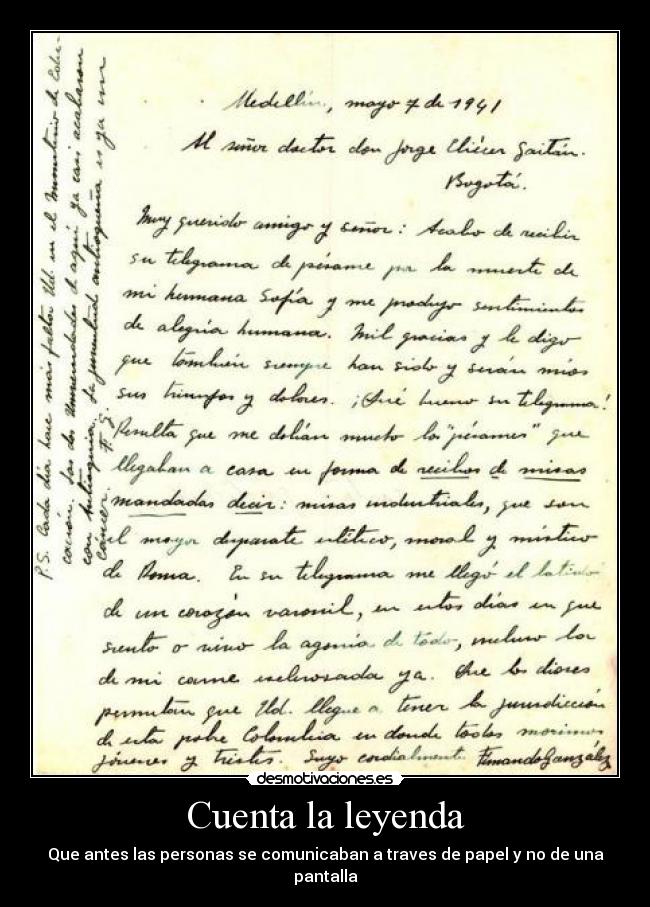 Medellín, mayo 7 de 1941
Al señor doctor don Jorge Eliécer Gaitán.
Bogotá.
Muy querido amigo y señor: Acabo de recibir
su telegrama de pésame por la muerte de
mi hermana Sofía y me produjo sentimientos
de alegría humana. Mil gracias y le digo
que también siempre han sido y serán míos
sus triunfos y dolores. ¡Qué bueno su telegrama!
Resulta que me dolían mucho los "pésames" que
llegaban a casa en forma de recibos de misas
mandadas decir: misas industriales, que son
el mayor disparate estético, moral y místico
de Roma. En su telegrama me llegó el latido
de un corazón varonil, en estos días en que
siento o vivo la agonía de todo, incluso la
de mi carne esclerosada ya. Que los dioses
permitan que Ud. llegue a tener la jurisdicción
de esta pobre Colombia en donde todos morimos
jóvenes y tristes. Suyo cordialmente Fernando González
P.S. Cada día hace más falta Ud. en el Ministerio de Edu-
cación. Las dos Universidades de aquí ya casi acabaron
con Antioquia. La juventud antioqueña es ya un
cáncer. F. G.
desmotivaciones.es
Cuenta la leyenda
Que antes las personas se comunicaban a traves de papel y no de una
pantalla